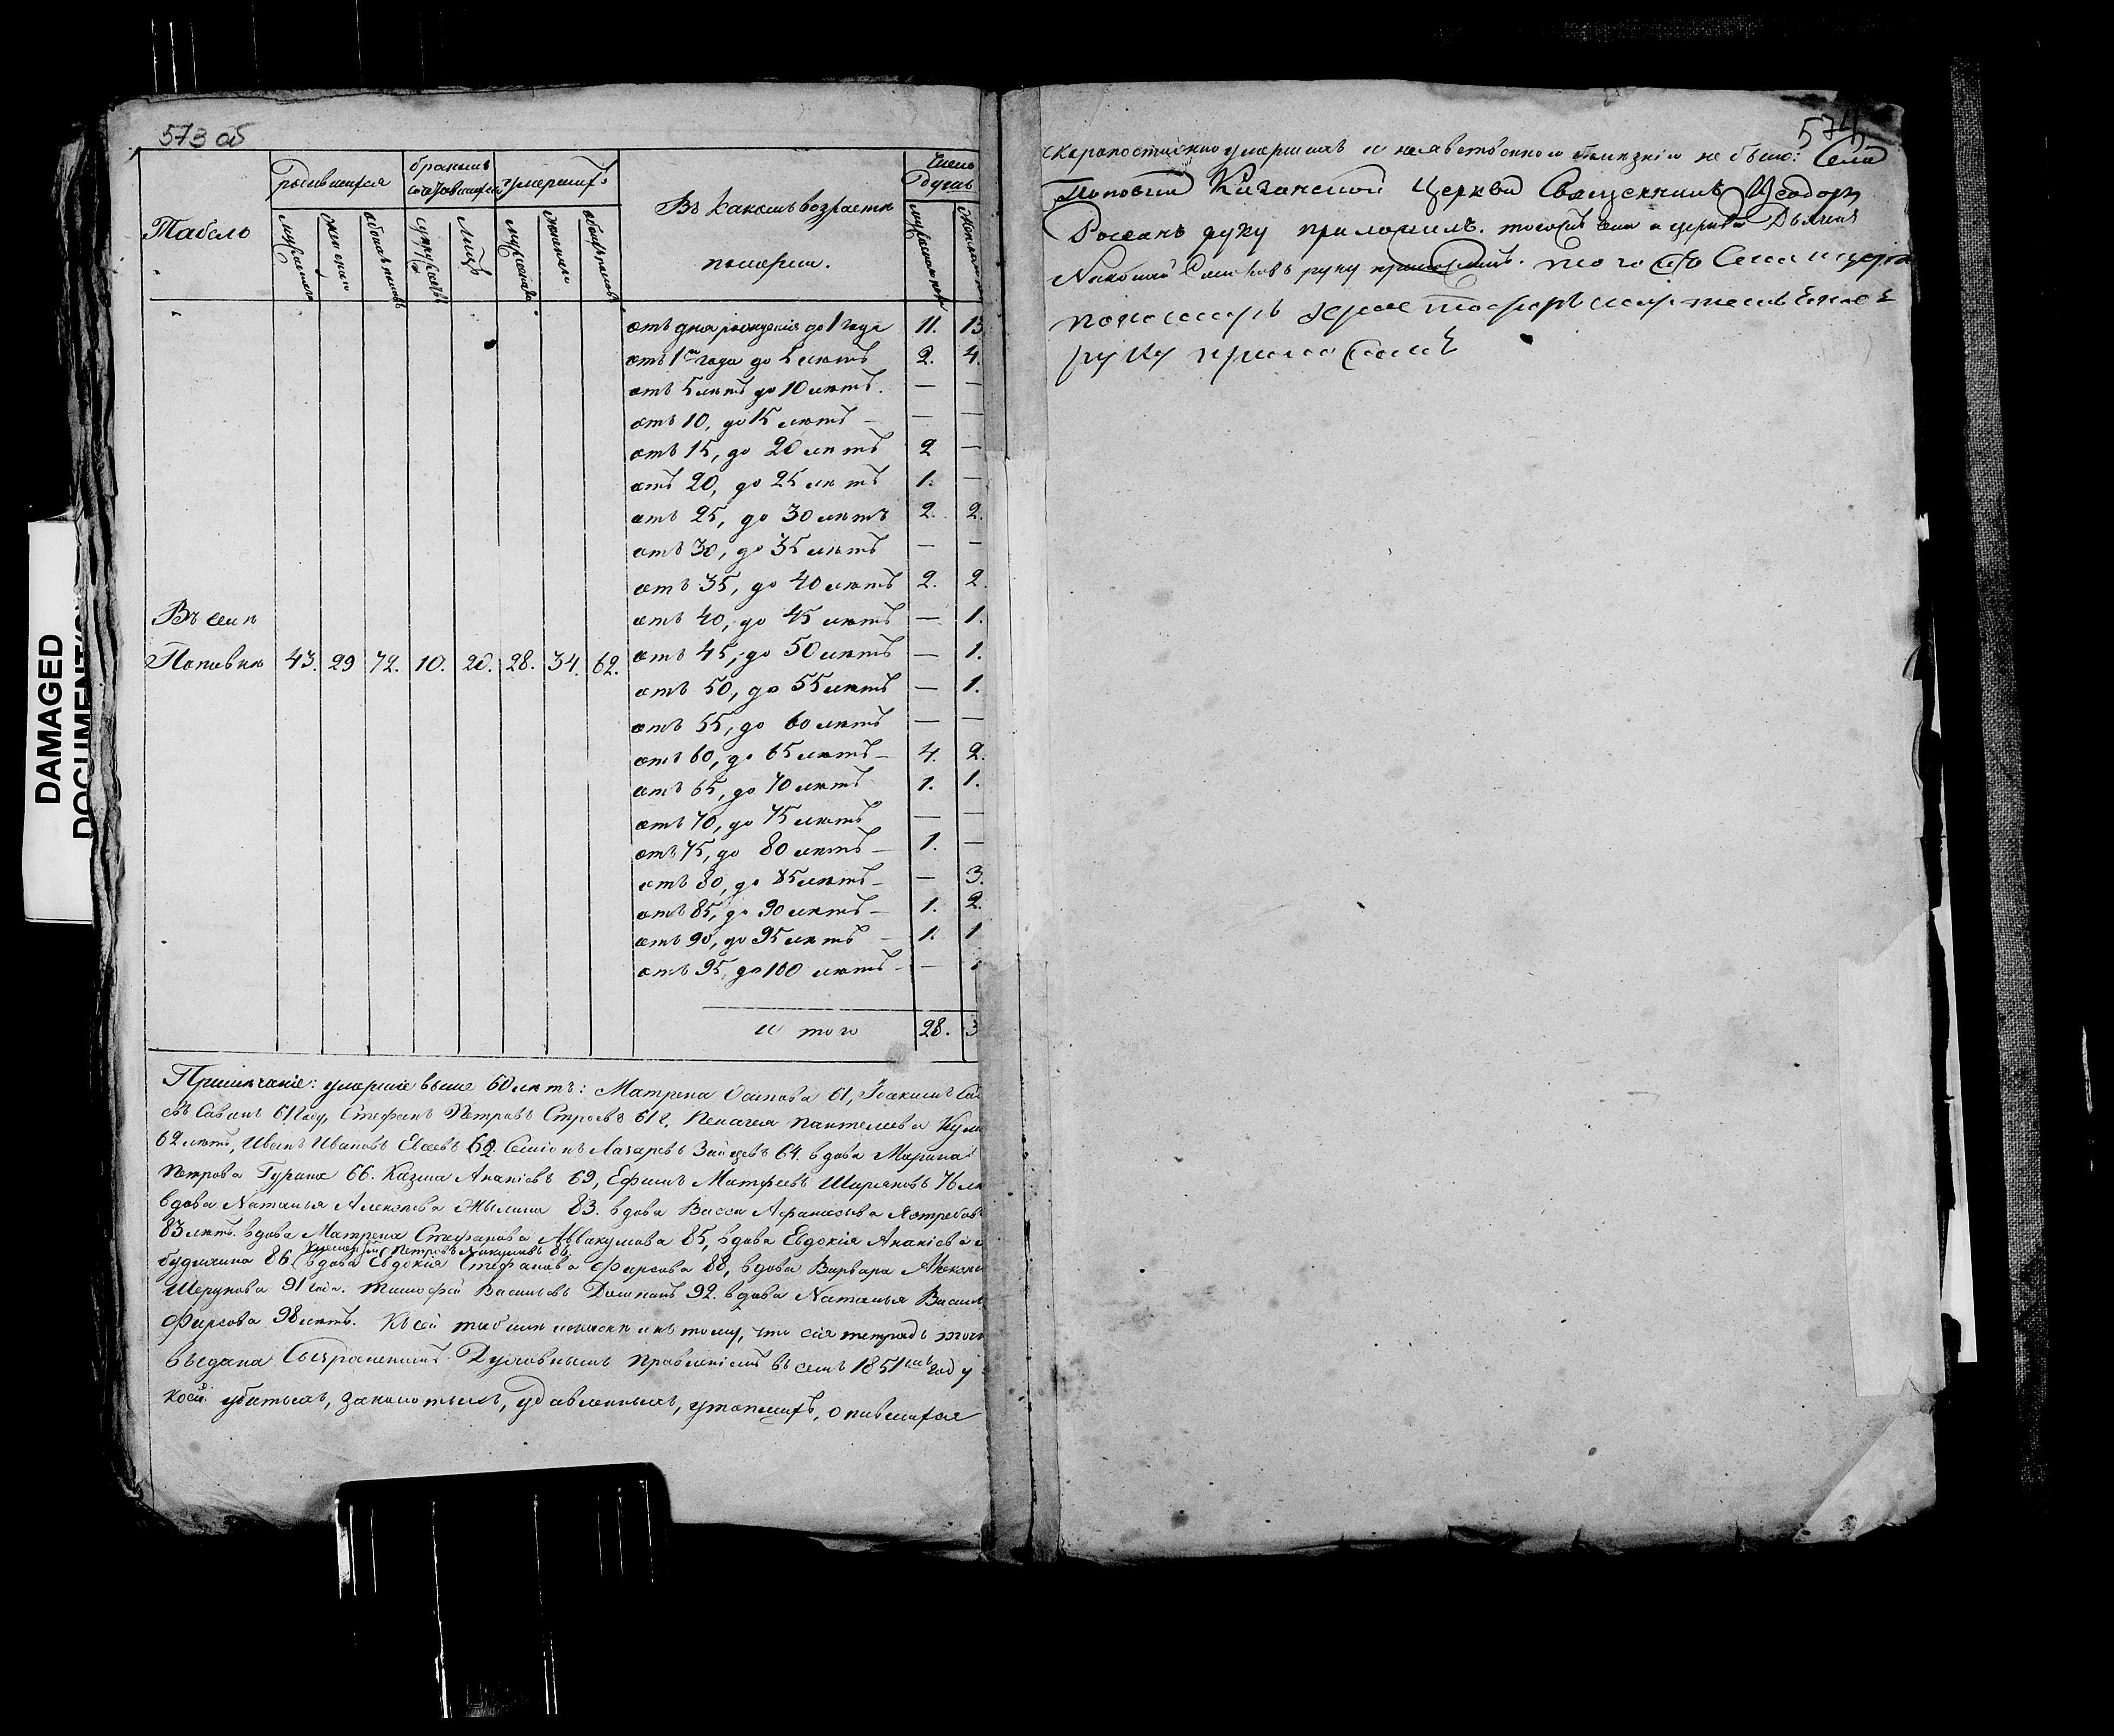 573 об
Табель
родившихся
бракомъ сочетавшихся
умершихъ
Въ какомъ возрастѣ
померли.
Число душъ
мужеска
женска
обоего
супружествъ
Лицъ
мужеска
женска
отъ дня рожденія до 1 года 11. 13
отъ 1го года до 5 лѣтъ 2. 4.
отъ 5 лѣтъ до 10 лѣтъ. — —
отъ 10, до 15 лѣтъ — — —
отъ 15, до 20 лѣтъ 2 —
отъ 20, до 25 лѣтъ 1. —
отъ 25, до 30 лѣтъ 2. 2.
отъ 30, до 35 лѣтъ — —
отъ 35, до 40 лѣтъ 2. 2.
Въ селѣ
отъ 40, до 45 лѣтъ — 1.
Поповкѣ 43. 29 72. 10. 20. 28. 34. 62.
отъ 45, до 50 лѣтъ — 1.
отъ 50, до 55 лѣтъ — 1.
отъ 55, до 60 лѣтъ — —
отъ 60, до 65 лѣтъ — 4. 2.
отъ 65, до 70 лѣтъ 1. 1.
отъ 70, до 75 лѣтъ — —
отъ 75, до 80 лѣтъ — 1. —
отъ 80, до 85 лѣтъ — — 3.
отъ 85, до 90 лѣтъ — 1. 2.
отъ 90, до 95 лѣтъ — 1. 1
отъ 95, до 100 лѣтъ — —
и того 28. 3
Примѣчаніе: умершіе выше 60 лѣтъ: Матрена Осипова 61, Іоакимъ
61 году, Стефанъ Петровъ Строевъ 61 г, Пелагея Пантелеева
62 лѣтъ, Иванъ Ивановъ Евсеевъ 62. Семіонъ Лазаревъ Зайцевъ 64. вдова Марина
Петрова Гурина 66. Казма Ананіевъ 69, Ефимъ Матфеевъ Ширяновъ 76
вдова Наталья Алексѣева Мылина 83. вдова Васса Афанасьева Ястребов
83 лѣтъ. вдова Матрена Стефанова Аввакумова 85, вдова Евдокія Ананіева
Петровъ Никулинъ 86,
будилина 86. вдова Евдокія Стефанова Фирсова 88, вдова Варвара
Шерунова 91 года. Тимофей Васильевъ 92. вдова Наталья
Фирсова 98 лѣтъ. Къ сей табели что сія тетрадь
выдана Сызранскимъ Духовнымъ Правленіемъ въ семъ 1851мъ году
убитыхъ, заколотыхъ, удавленныхъ, утопшихъ, опившихся
574
скоропостижно умершихъ и неявственною болѣзнію не было: Села
Поповки Казанской Церкви Священникъ Ѳеодоръ
Росланъ руку приложилъ. тогожъ села и церкви Дьячекъ
Николай руку приложилъ. того жъ Села и церкви
пономарь
руку приложилъ
DAMAGED
DOCUMENT